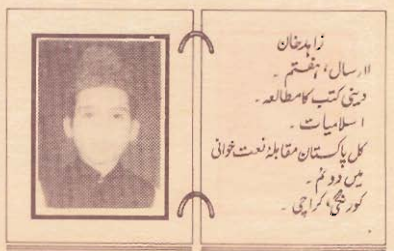 زاہد خان
۱۱ سال، ہفتم ۔
دینی کتب کا مطالعہ ۔
اسلامیات ۔
کل پاکستان مقابلۂ نعت خوانی
میں دوئم ۔
کورنگی، کراچی ۔